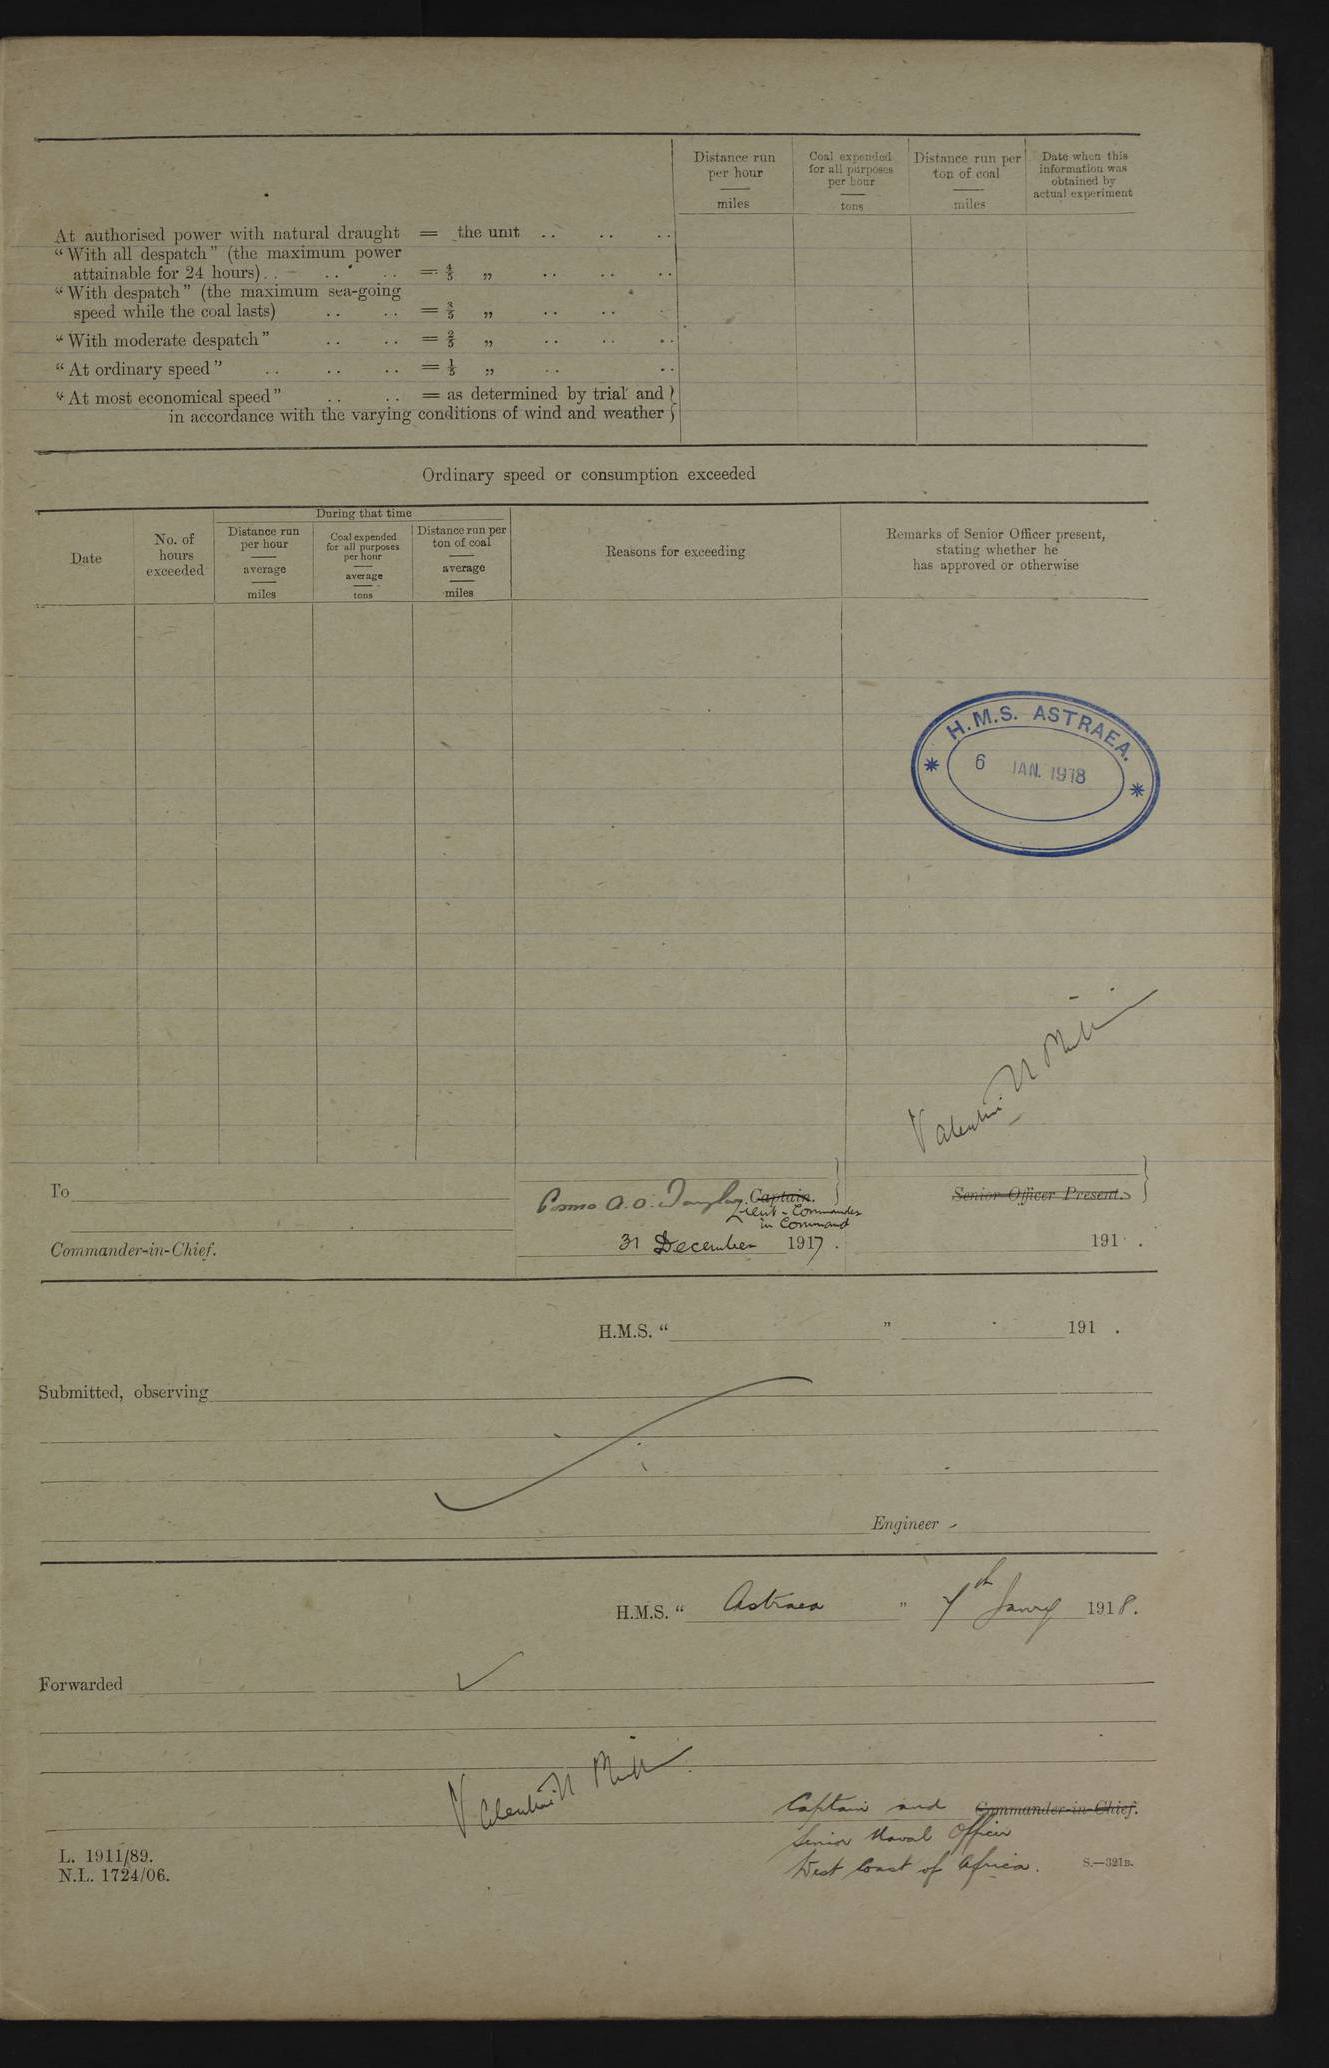 Distance run per hour
miles
Coal expended for all purposes per hour
tons
Distance run per ton of coal
miles
Date when this information was obtained by actual experiment
At authorised power with natural draught = the unit .. .. ..
"With all despatch" (the maximum power
attainable for 24 hours) .. .. .. = 4/5 „ .. .. ..
"With despatch" (the maximum sea-going
speed while the coal lasts) .. .. = 3/5 „ .. .. .
"With moderate despatch" .. .. = 2/5 „ .. .. ..
"At ordinary speed" .. .. .. = 1/5 „ .. ..
"At most economical speed" .. .. = as determined by trial and }
in accordance with the varying conditions of wind and weather }
Ordinary speed or consumption exceeded
Date
No. of hours exceeded
During that time
Distance run per hour
average
miles
Coal expended for all purposes per hour
average
tons
Distance run per ton of coal
average
miles
Reasons for exceeding
Remarks of Senior Officer present,
stating whether he
has approved or otherwise
H.M.S. ASTRAEA.
* 6 JAN. 1918 *
Valentine
To
Captain.
Senior Officer Present.
Lieut-Commander
in Command
Commander-in-Chief.
31 December 1917.
191 .
H.M.S. " " 191 .
Submitted, observing
Engineer
H.M.S. " Astraea " 7th Jany 1918.
Forwarded
Valentine
Captain and Commander-in-Chief.
Senior Naval Officer
West Coast of Africa.
L. 1911/89.
N.L. 1724/06.
S.—321B.